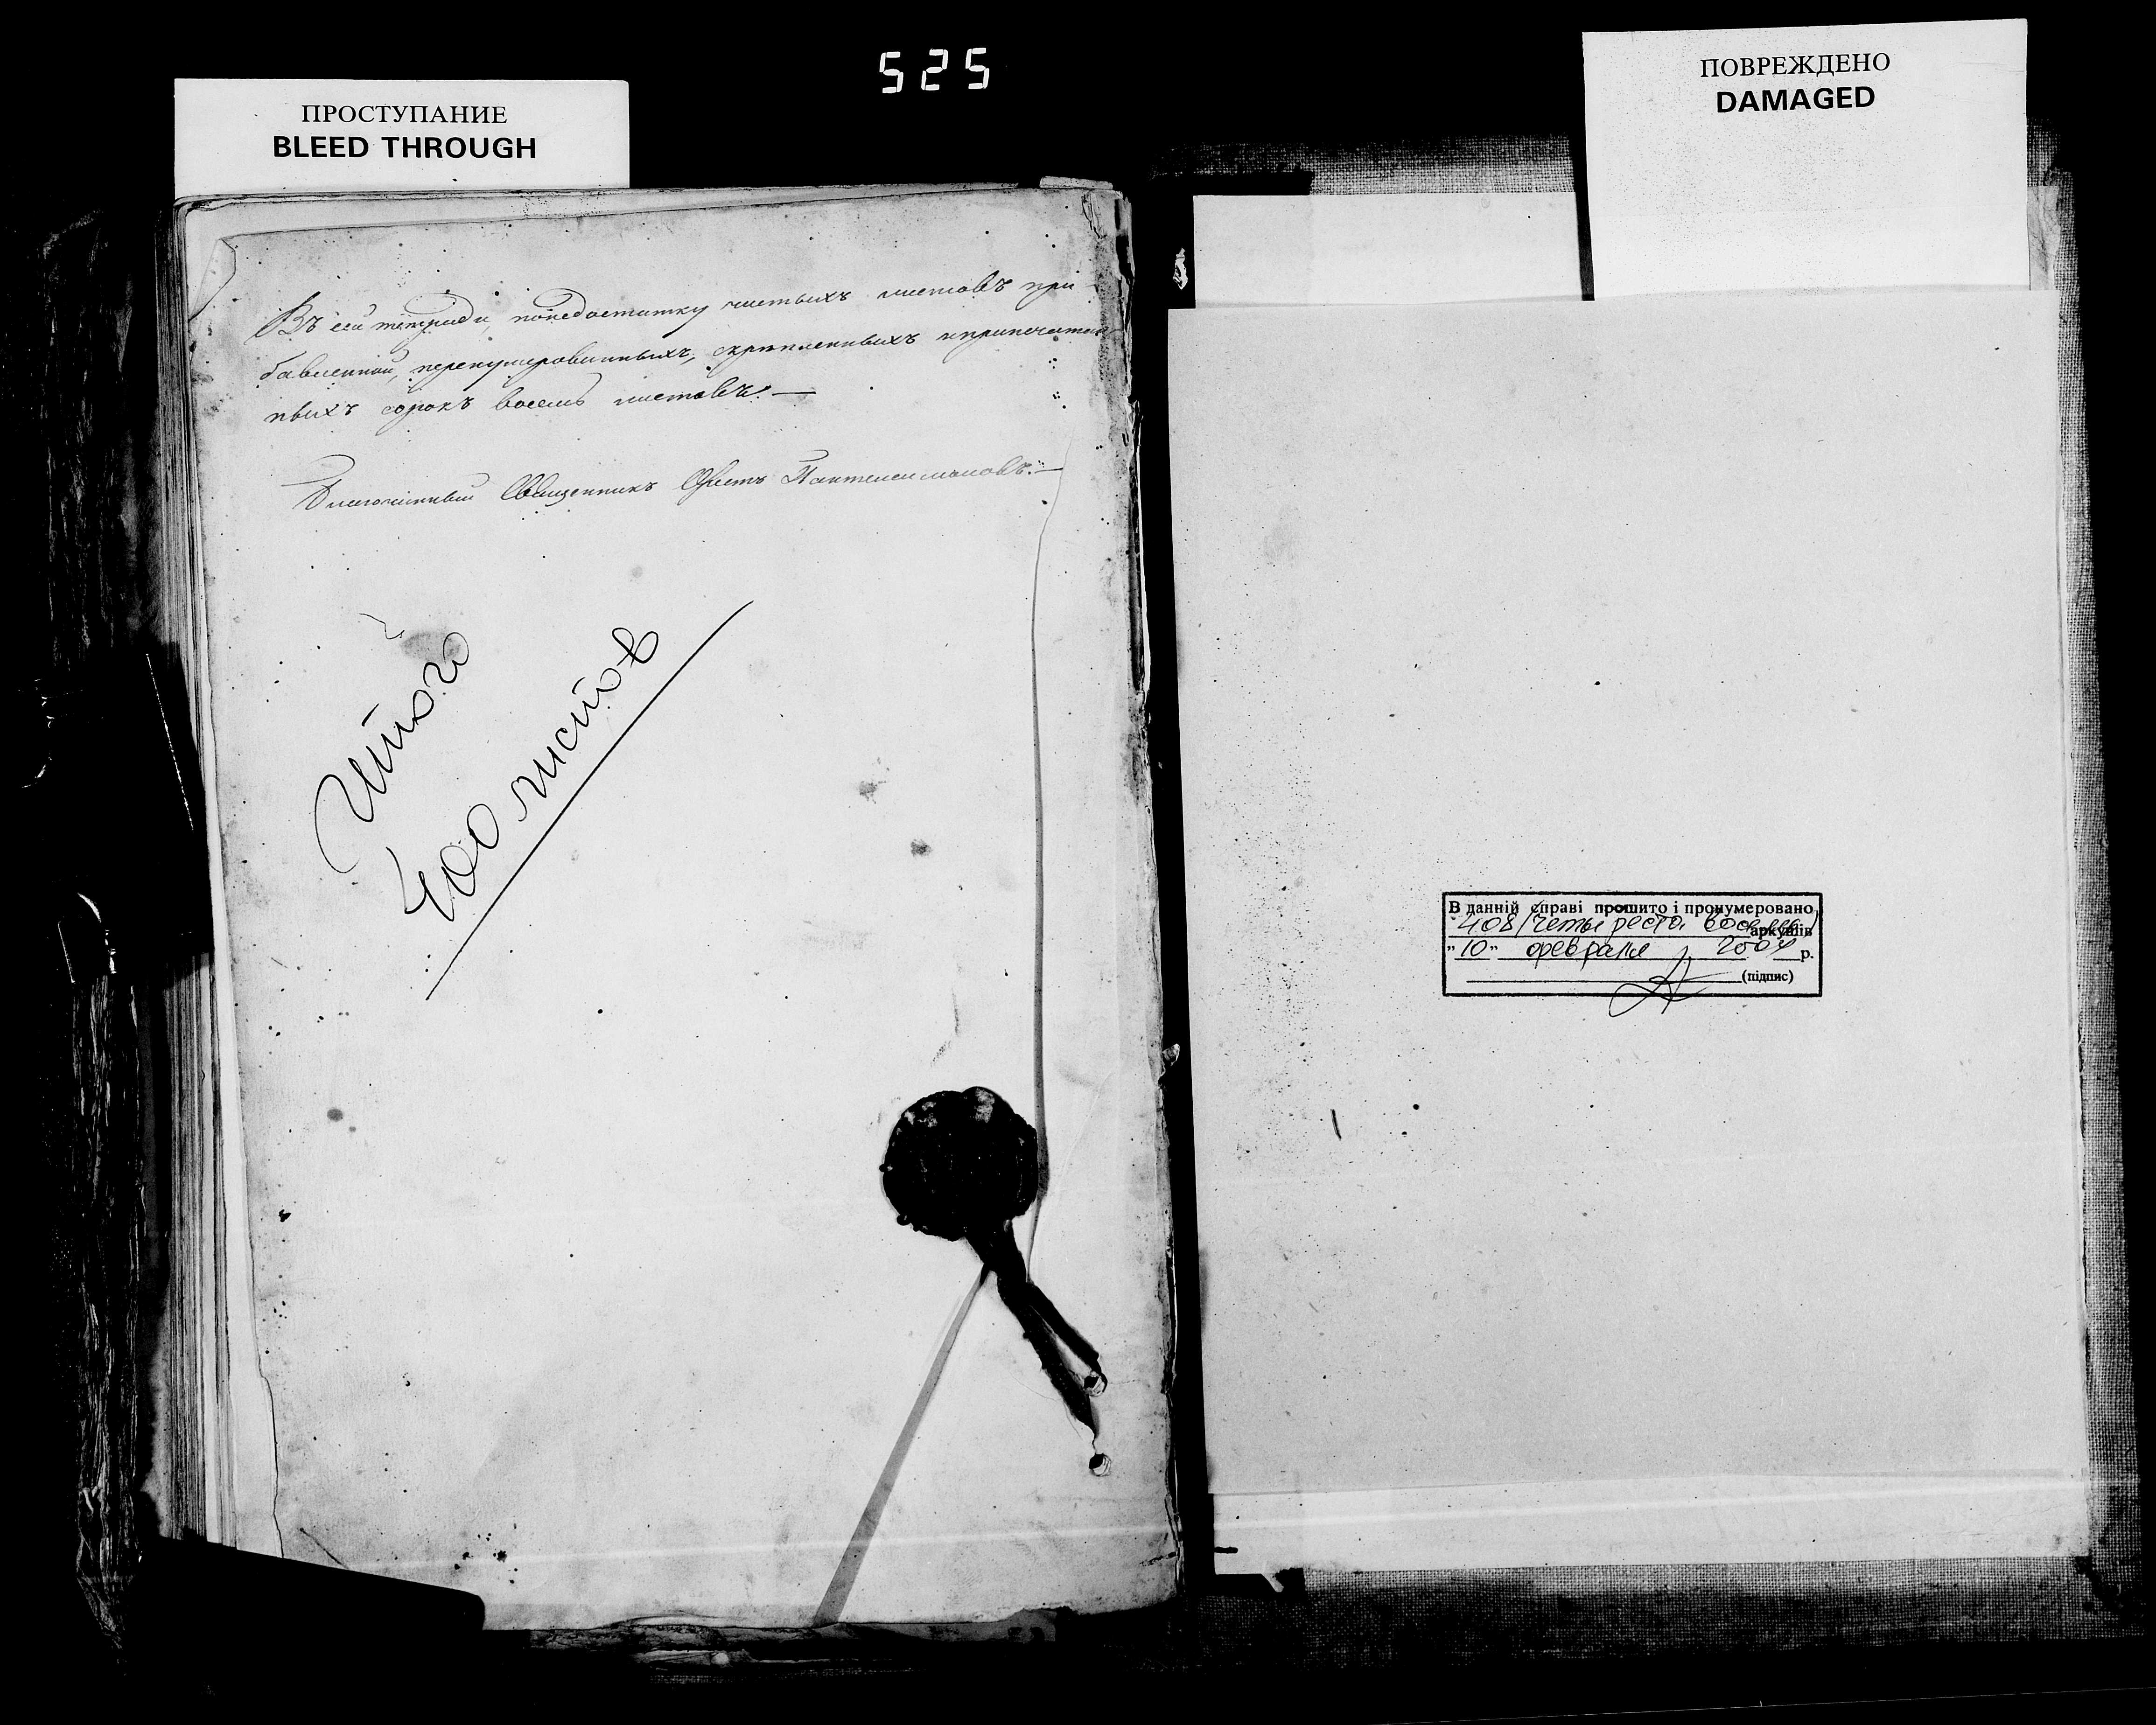 525
ПРОСТУПАНИЕ
BLEED THROUGH
ПОВРЕЖДЕНО
DAMAGED
Въ сей тетради, понедостатку чистыхъ листовъ при-
бавленной, перенумерованныхъ, скрѣпленныхъ иприпечатан-
ныхъ сорокъ восемь листовъ.—
Благочинный Священникъ Пантелеимоновъ.—
Итого
400 листов
В данній справі прошито і пронумеровано
408 (четыреста восемь) аркушів
"10" февраля 2004 р.
(підпис)